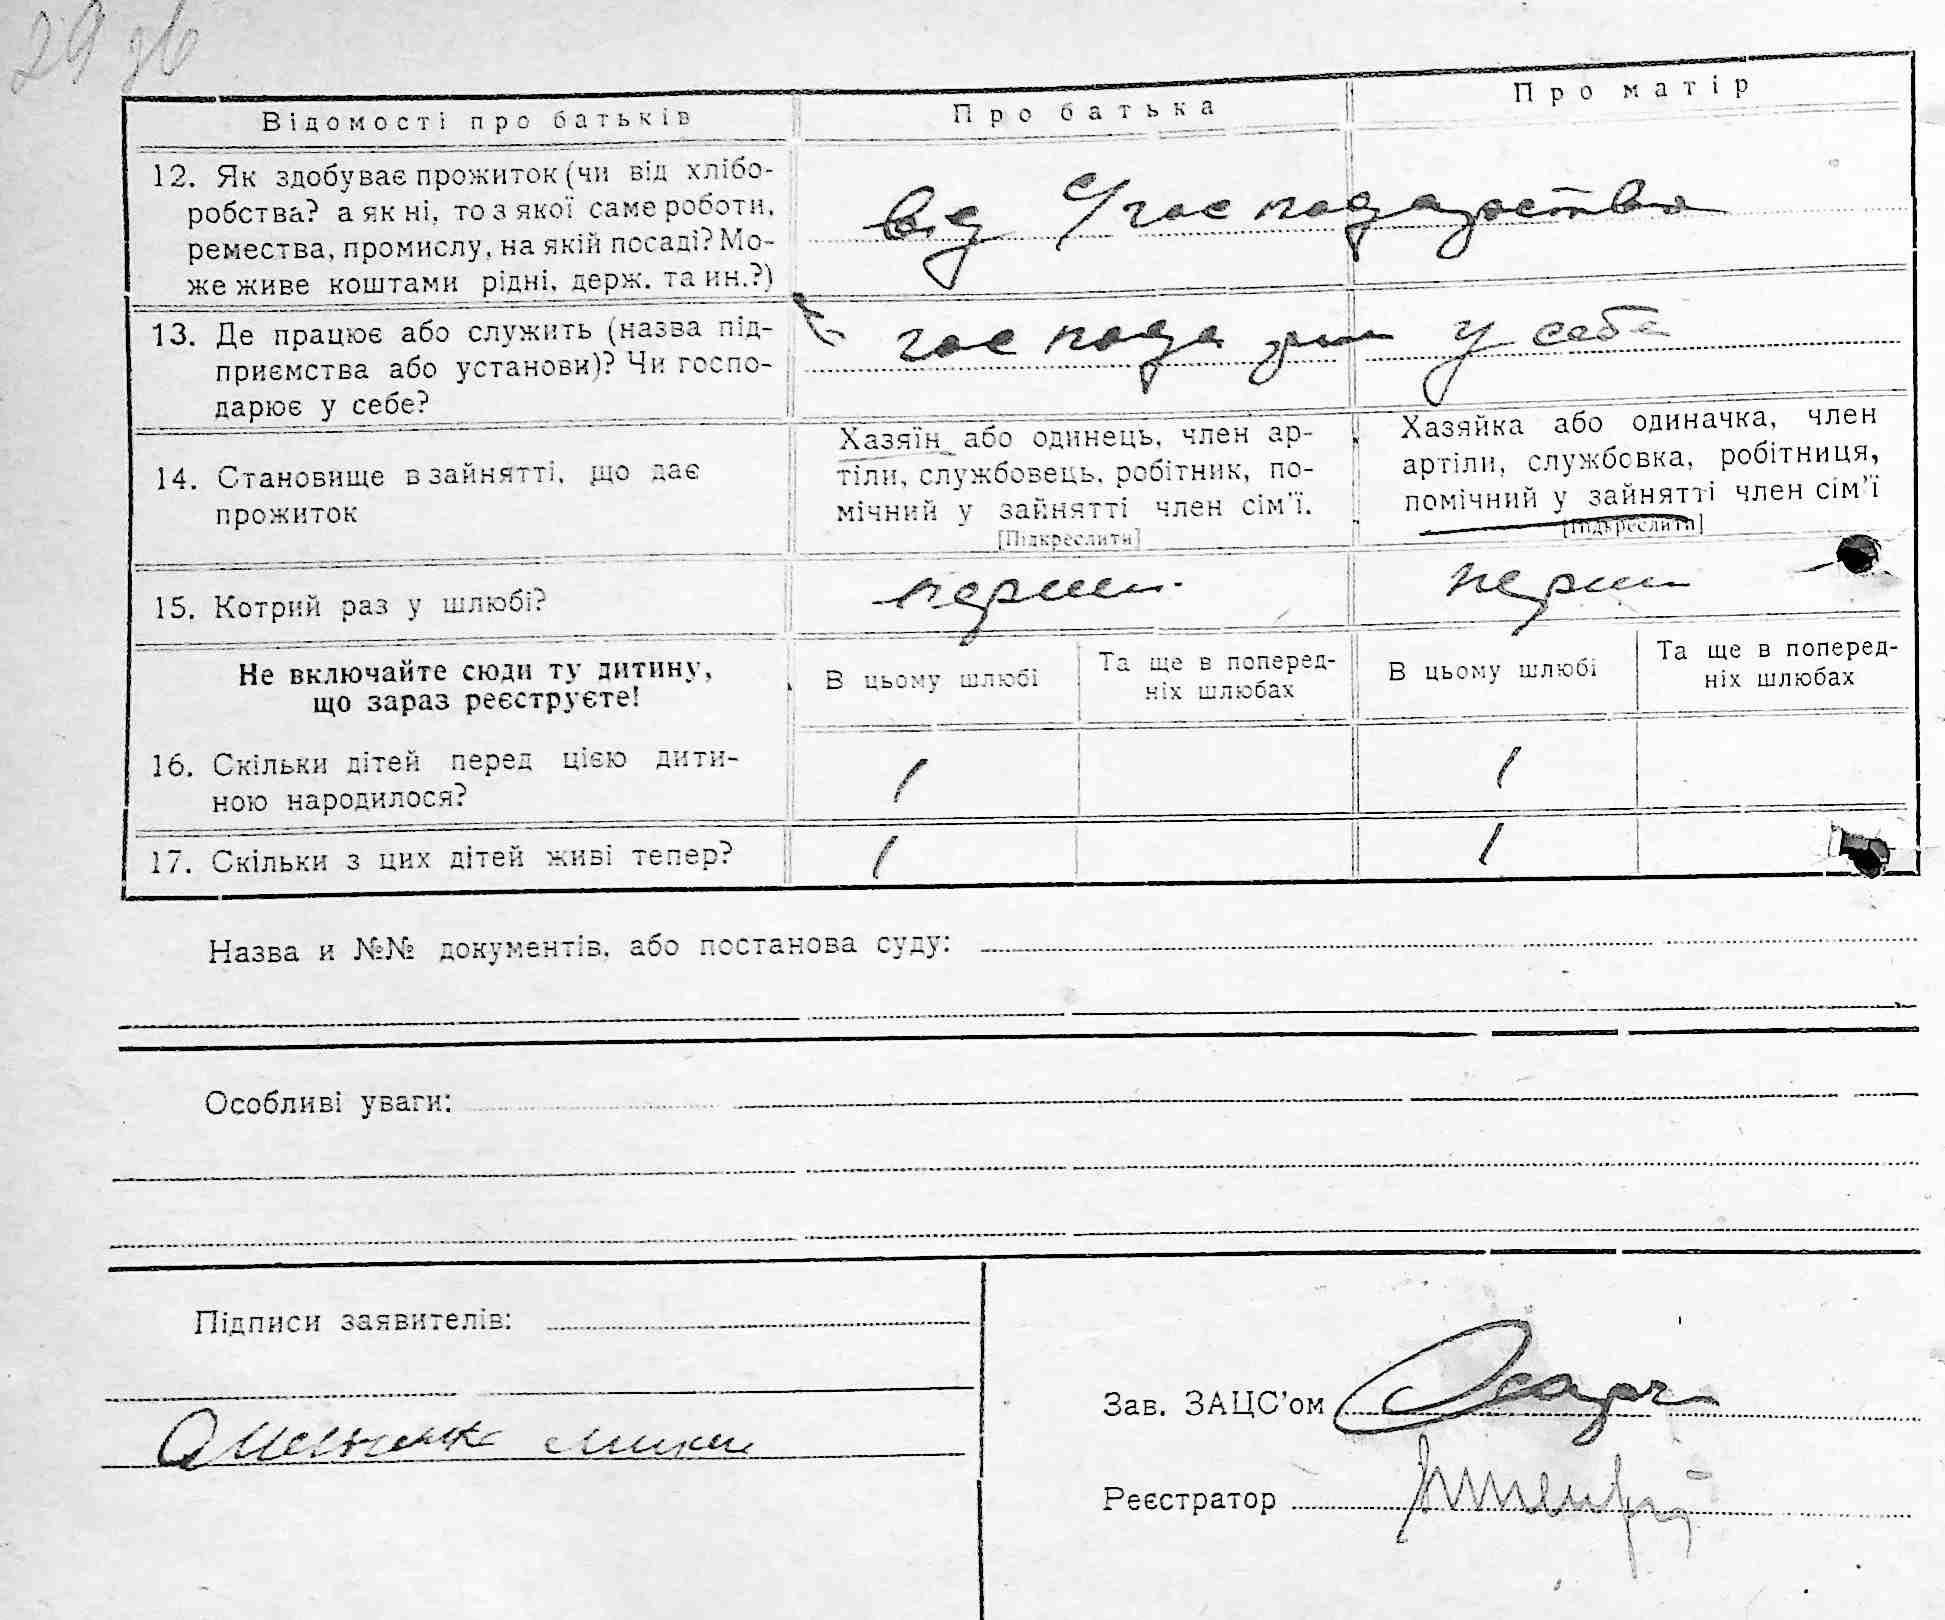 29 зв
Відомості про батьків
Про батька
Про матір
12. Як здобуває прожиток (чи від хлібо-
робства? а як ні, то з якої саме роботи,
ремества, промислу, на якій посаді? Мо-
же живе коштами рідні, держ. та ин.?)
від с/господарства
13. Де працює або служить (назва під-
приємства або установи)? Чи госпо-
дарює у себе?
господарює у себе
14. Становище в зайнятті, що дає
прожиток
Хазяїн або одинець, член ар-
тіли, службовець, робітник, по-
мічний у зайнятті член сім'ї.
[Підкреслити]
Хазяйка або одиначка, член
артіли, службовка, робітниця,
помічний у зайнятті член сім'ї
[Підкреслити]
15. Котрий раз у шлюбі?
перший
перший
Не включайте сюди ту дитину,
що зараз реєструєте!
В цьому шлюбі
Та ще в поперед-
ніх шлюбах
В цьому шлюбі
Та ще в поперед-
ніх шлюбах
16. Скільки дітей перед цією дити-
ною народилося?
1
1
17. Скільки з цих дітей живі тепер?
1
1
Назва и №№ документів, або постанова суду:
Особливі уваги:
Підписи заявителів:
Зав. ЗАЦС'ом
Реєстратор